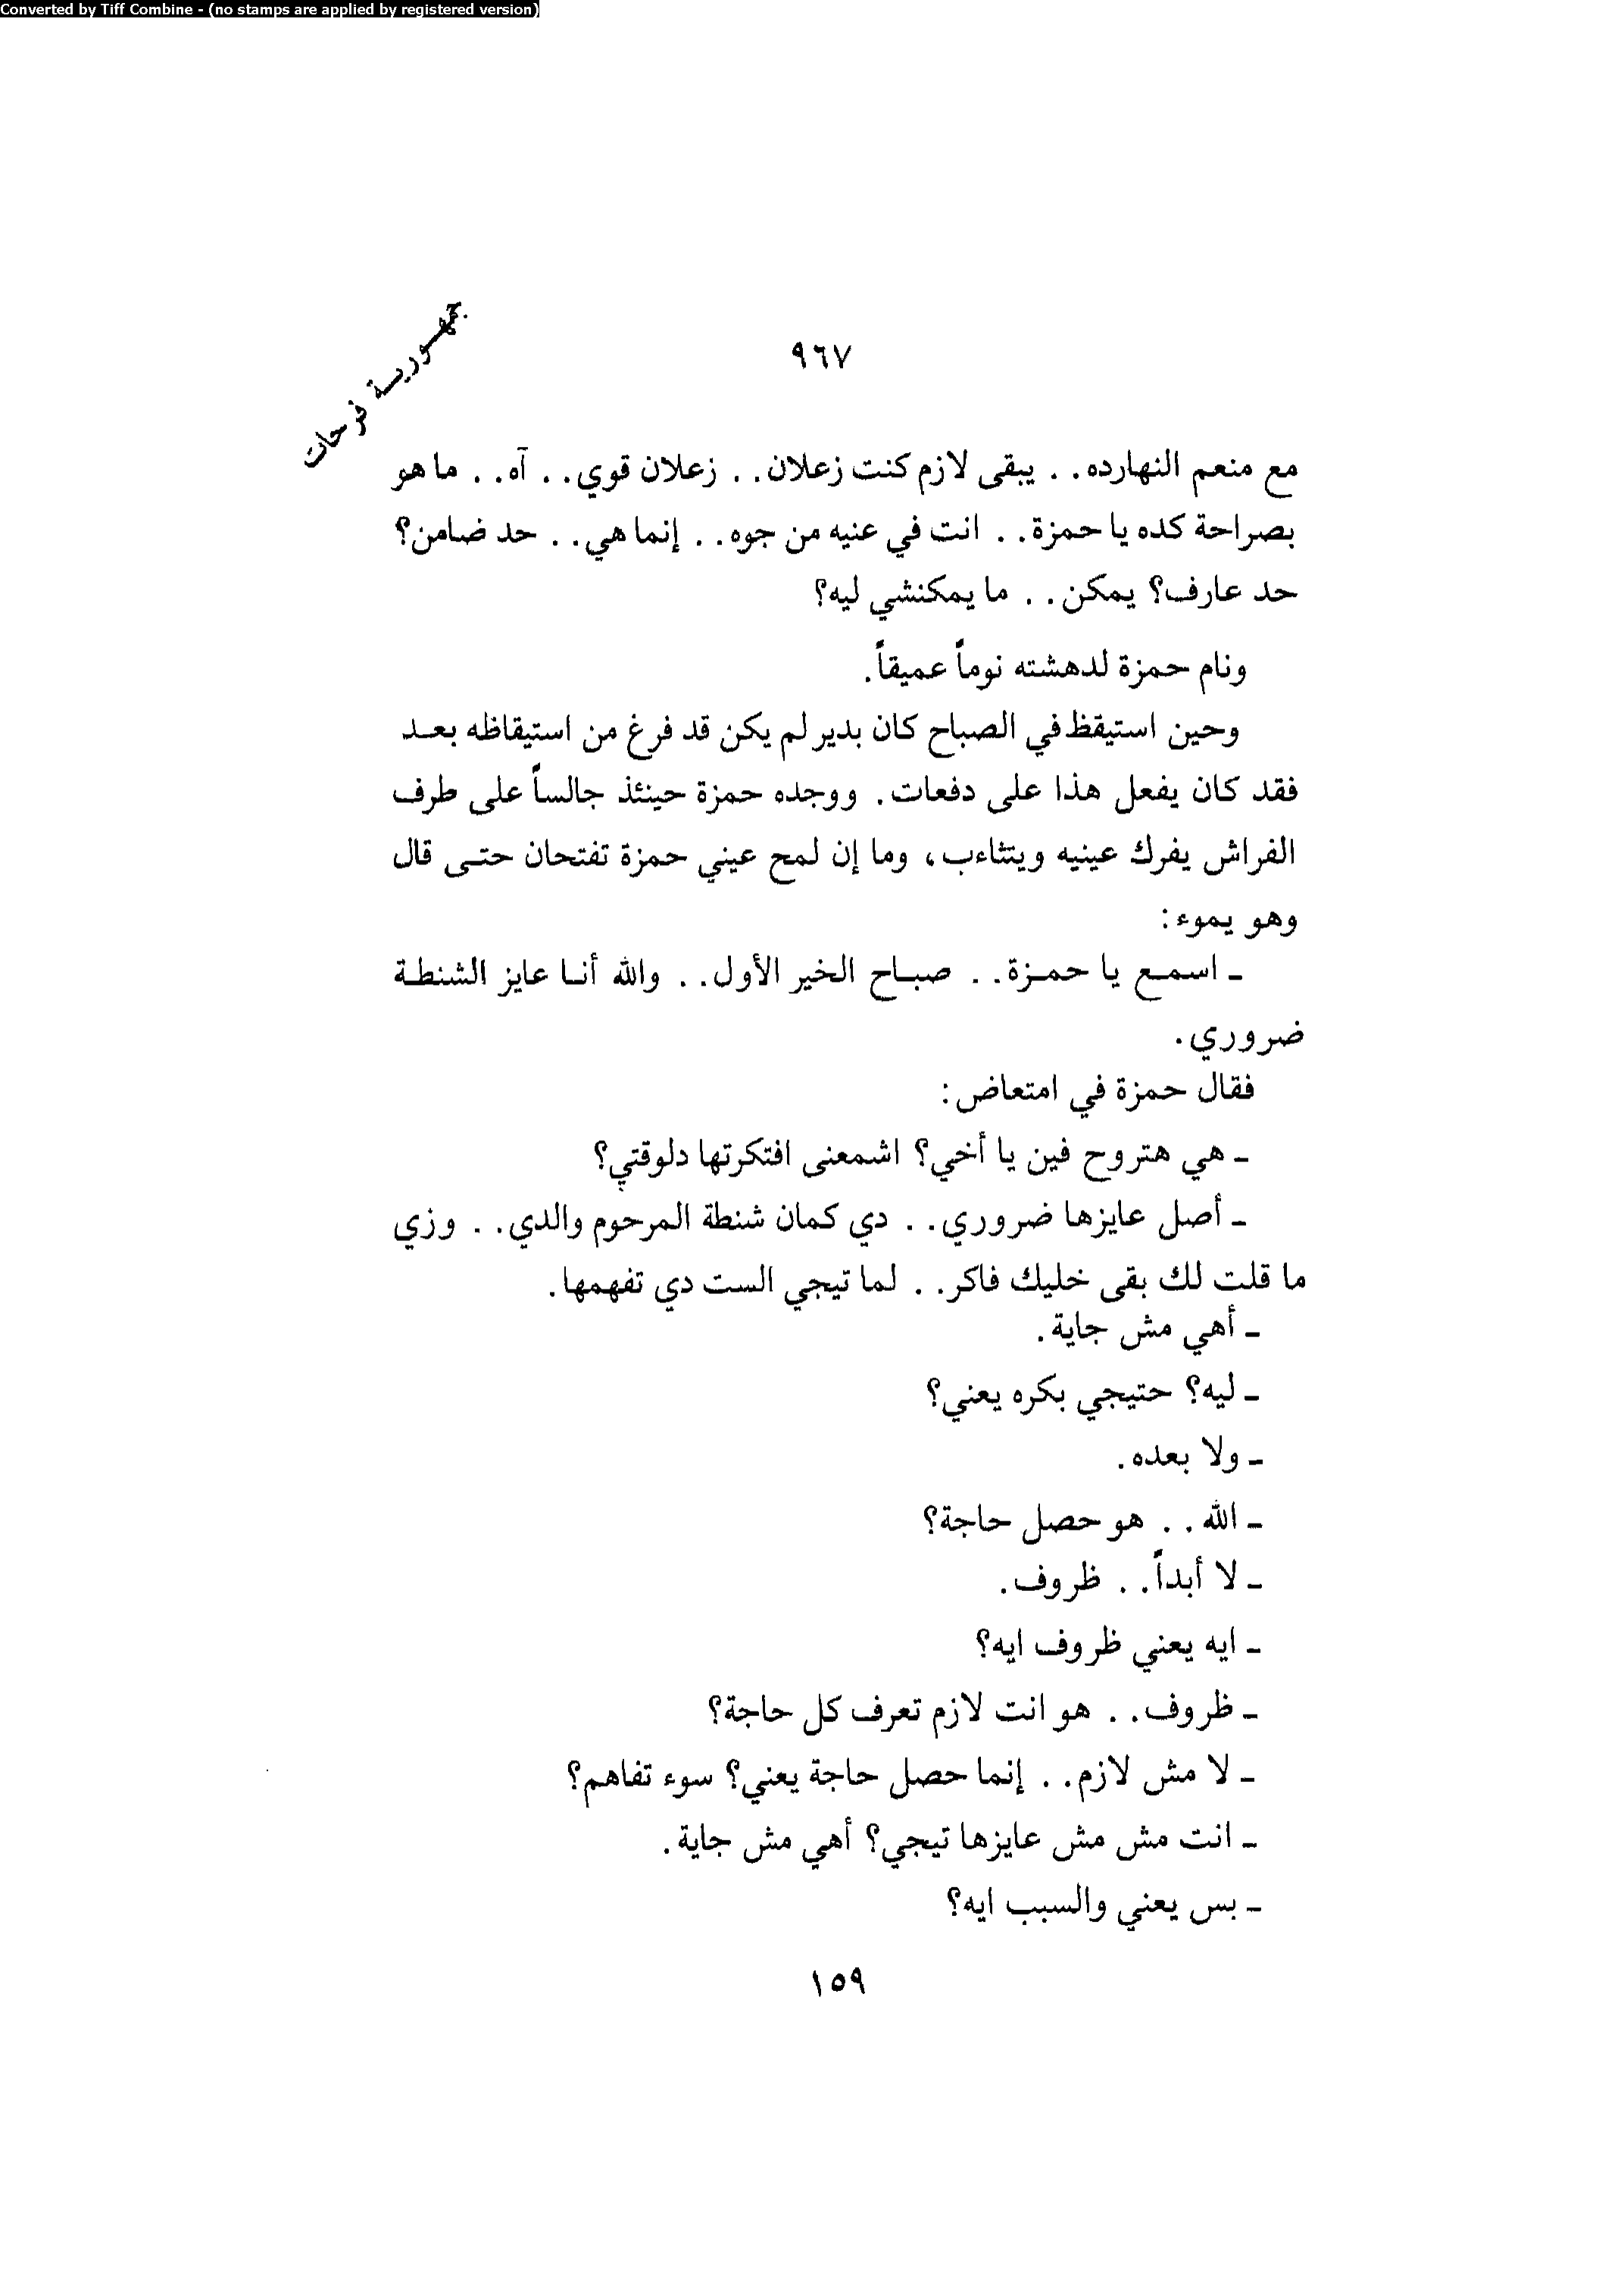 Converted by Tiff Combine - (no stamps are applied by registered version)
جمهورية فرحات
٩٦٧
مع منعم النهارده. . يبقى لازم كنت زعلان. . زعلان قوي. . آه. . ما هو
بصراحة كده يا حمزة. . انت في عنيه من جوه. . إنما هي. . حد ضامن؟
حد عارف؟ يمكن. . ما يمكنشي ليه؟
ونام حمزة لدهشته نوماً عميقاً.
وحين استيقظ في الصباح كان بدير لم يكن قد فرغ من استيقاظه بعد
فقد كان يفعل هذا على دفعات. ووجده حمزة حينئذ جالساً على طرف
الفراش يفرك عينيه ويتثاءب، وما إن لمح عيني حمزة تفتحان حتى قال
وهو يموء:
ـ اسمع يا حمزة. . صباح الخير الأول. . والله أنا عايز الشنطة
ضروري.
فقال حمزة في امتعاض:
ـ هي هتروح فين يا أخي؟ اشمعنى افتكرتها دلوقتي؟
ـ أصل عايزها ضروري. . دي كمان شنطة المرحوم والدي. . وزي
ما قلت لك بقى خليك فاكر. . لما تيجي الست دي تفهمها.
ـ أهي مش جاية.
ـ ليه؟ حتيجي بكره يعني؟
ـ ولا بعده.
ـ الله. . هو حصل حاجة؟
ـ لا أبداً. . ظروف.
ـ ايه يعني ظروف ايه؟
ـ ظروف. . هو انت لازم تعرف كل حاجة؟
ـ لا مش لازم. . إنما حصل حاجة يعني؟ سوء تفاهم؟
ـ انت مش مش عايزها تيجي؟ أهي مش جاية.
ـ بس يعني والسبب ايه؟
١٥٩